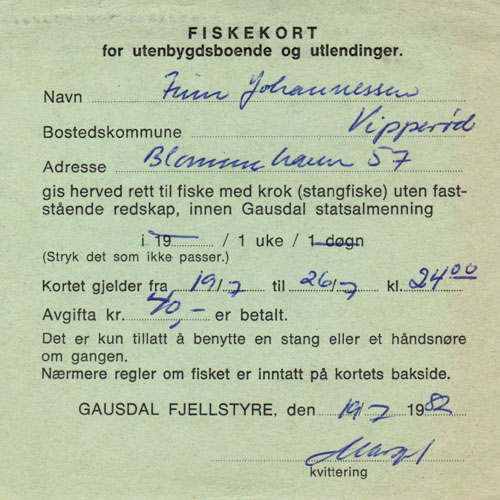 FISKEKORT
for utenbygdsboende og utlendinger.
Navn Finn Johannessen
Bostedskommune Vipperød
Adresse Blommehaven 57
gis herved rett til fiske med krok (stangfiske) uten fast-
stående redskap, innen Gausdal statsalmenning
i 19 / 1 uke / 1 døgn
(Stryk det som ikke passer.)
Kortet gjelder fra 19/7 til 26/7 kl. 24⁰⁰
Avgifta kr. 40,- er betalt.
Det er kun tillatt å benytte en stang eller et håndsnøre
om gangen.
Nærmere regler om fisket er inntatt på kortets bakside.
GAUSDAL FJELLSTYRE, den 19/7 1982
kvittering